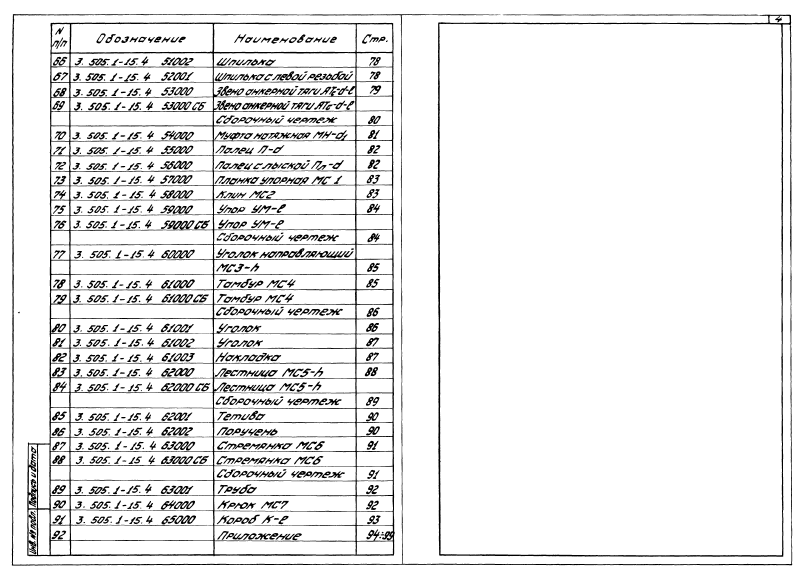 4
N п/п Обозначение Наименование Стр.
66 3.505.1-15.4 51002 Шпилька 78
67 3.505.1-15.4 52001 Шпилька с левой резьбой 78
68 3.505.1-15.4 53000 Звено анкерной тяги АТс-d-ℓ 79
69 3.505.1-15.4 53000 СБ Звено анкерной тяги АТс-d-ℓ
Сборочный чертеж 80
70 3.505.1-15.4 54000 Муфта натяжная МН-d₁ 81
71 3.505.1-15.4 55000 Палец П-d 82
72 3.505.1-15.4 56000 Палец с лыской Пл-d 82
73 3.505.1-15.4 57000 Планка упорная МС 1 83
74 3.505.1-15.4 58000 Клин МС2 83
75 3.505.1-15.4 59000 Упор УМ-ℓ 84
76 3.505.1-15.4 59000 СБ Упор УМ-ℓ
Сборочный чертеж 84
77 3.505.1-15.4 60000 Уголок направляющий
МС3-h 85
78 3.505.1-15.4 61000 Тамбур МС4 85
79 3.505.1-15.4 61000 СБ Тамбур МС4
Сборочный чертеж 86
80 3.505.1-15.4 61001 Уголок 86
81 3.505.1-15.4 61002 Уголок 87
82 3.505.1-15.4 61003 Накладка 87
83 3.505.1-15.4 62000 Лестница МС5-h 88
84 3.505.1-15.4 62000 СБ Лестница МС5-h
Сборочный чертеж 89
85 3.505.1-15.4 62001 Тетива 90
86 3.505.1-15.4 62002 Поручень 90
87 3.505.1-15.4 63000 Стремянка МС6 91
88 3.505.1-15.4 63000 СБ Стремянка МС6
Сборочный чертеж 91
89 3.505.1-15.4 63001 Труба 92
90 3.505.1-15.4 64000 Крюк МС7 92
91 3.505.1-15.4 65000 Короб К-ℓ 93
92 Приложение 94÷99
Инв. № подл. Подпись и дата